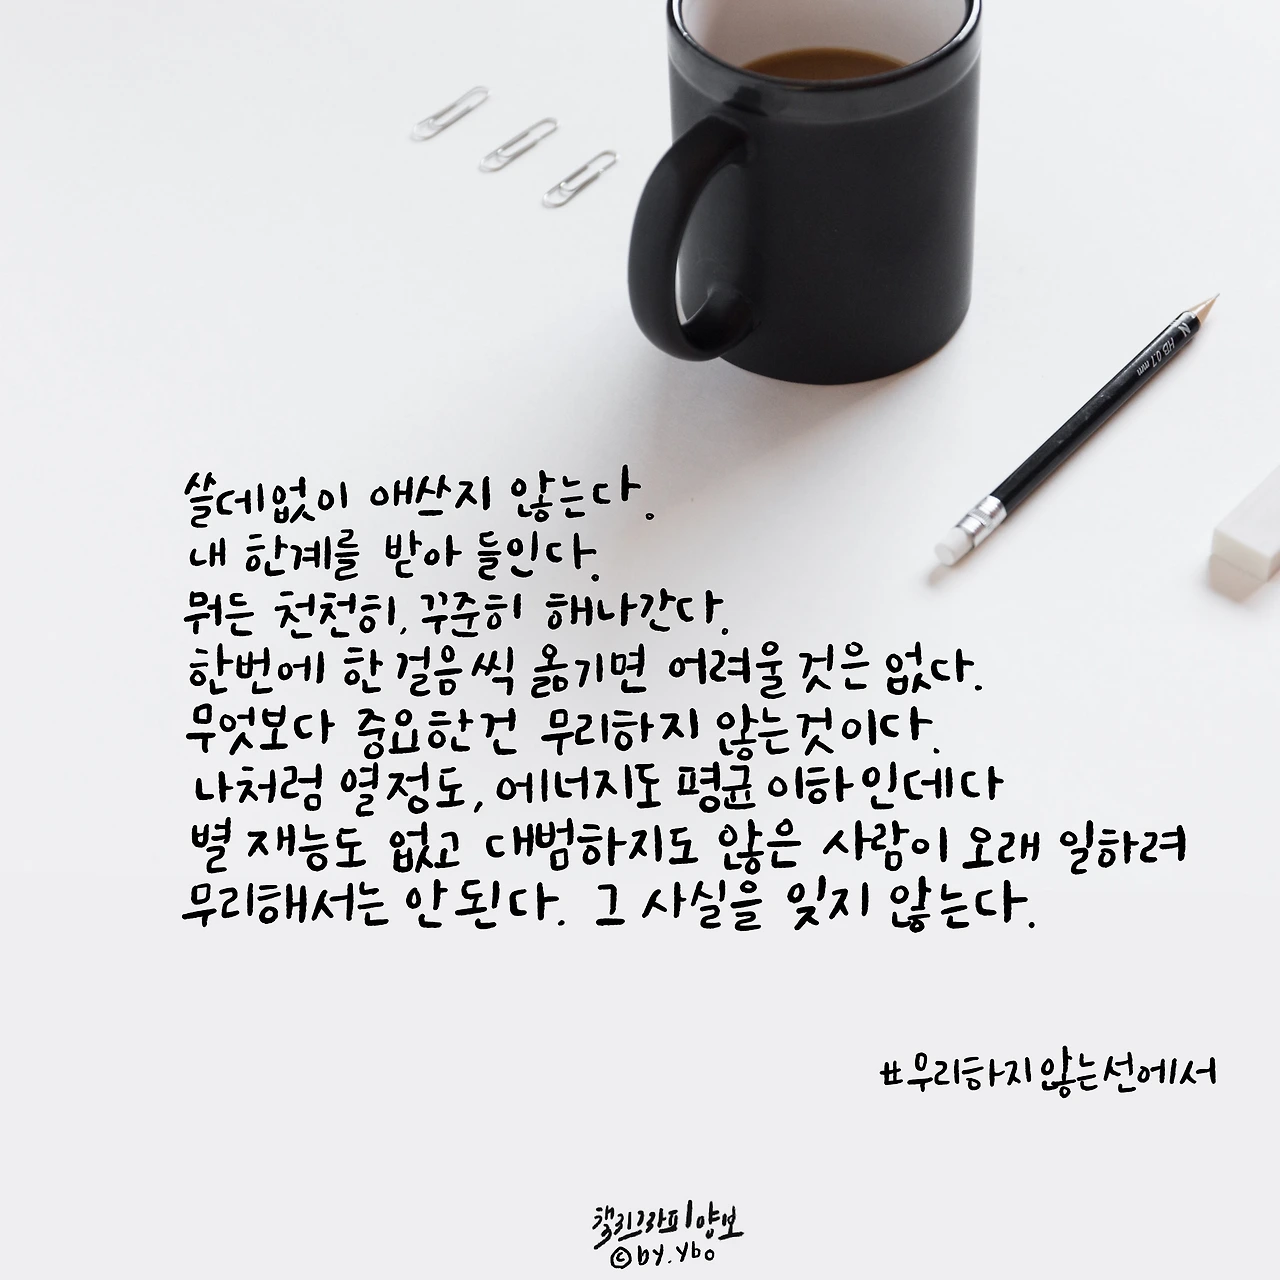 HB 0.7 mm
쓸데없이 애쓰지 않는다.
내 한계를 받아 들인다.
뭐든 천천히, 꾸준히 해나간다.
한번에 한 걸음씩 옮기면 어려울것은 없다.
무엇보다 중요한건 무리하지 않는것이다.
나처럼 열정도, 에너지도 평균이하인데다
별 재능도 없고 대범하지도 않은 사람이 오래 일하려
무리해서는 안된다. 그 사실을 잊지 않는다.
#무리하지않는선에서
캘리그라피양보
©by.ybo